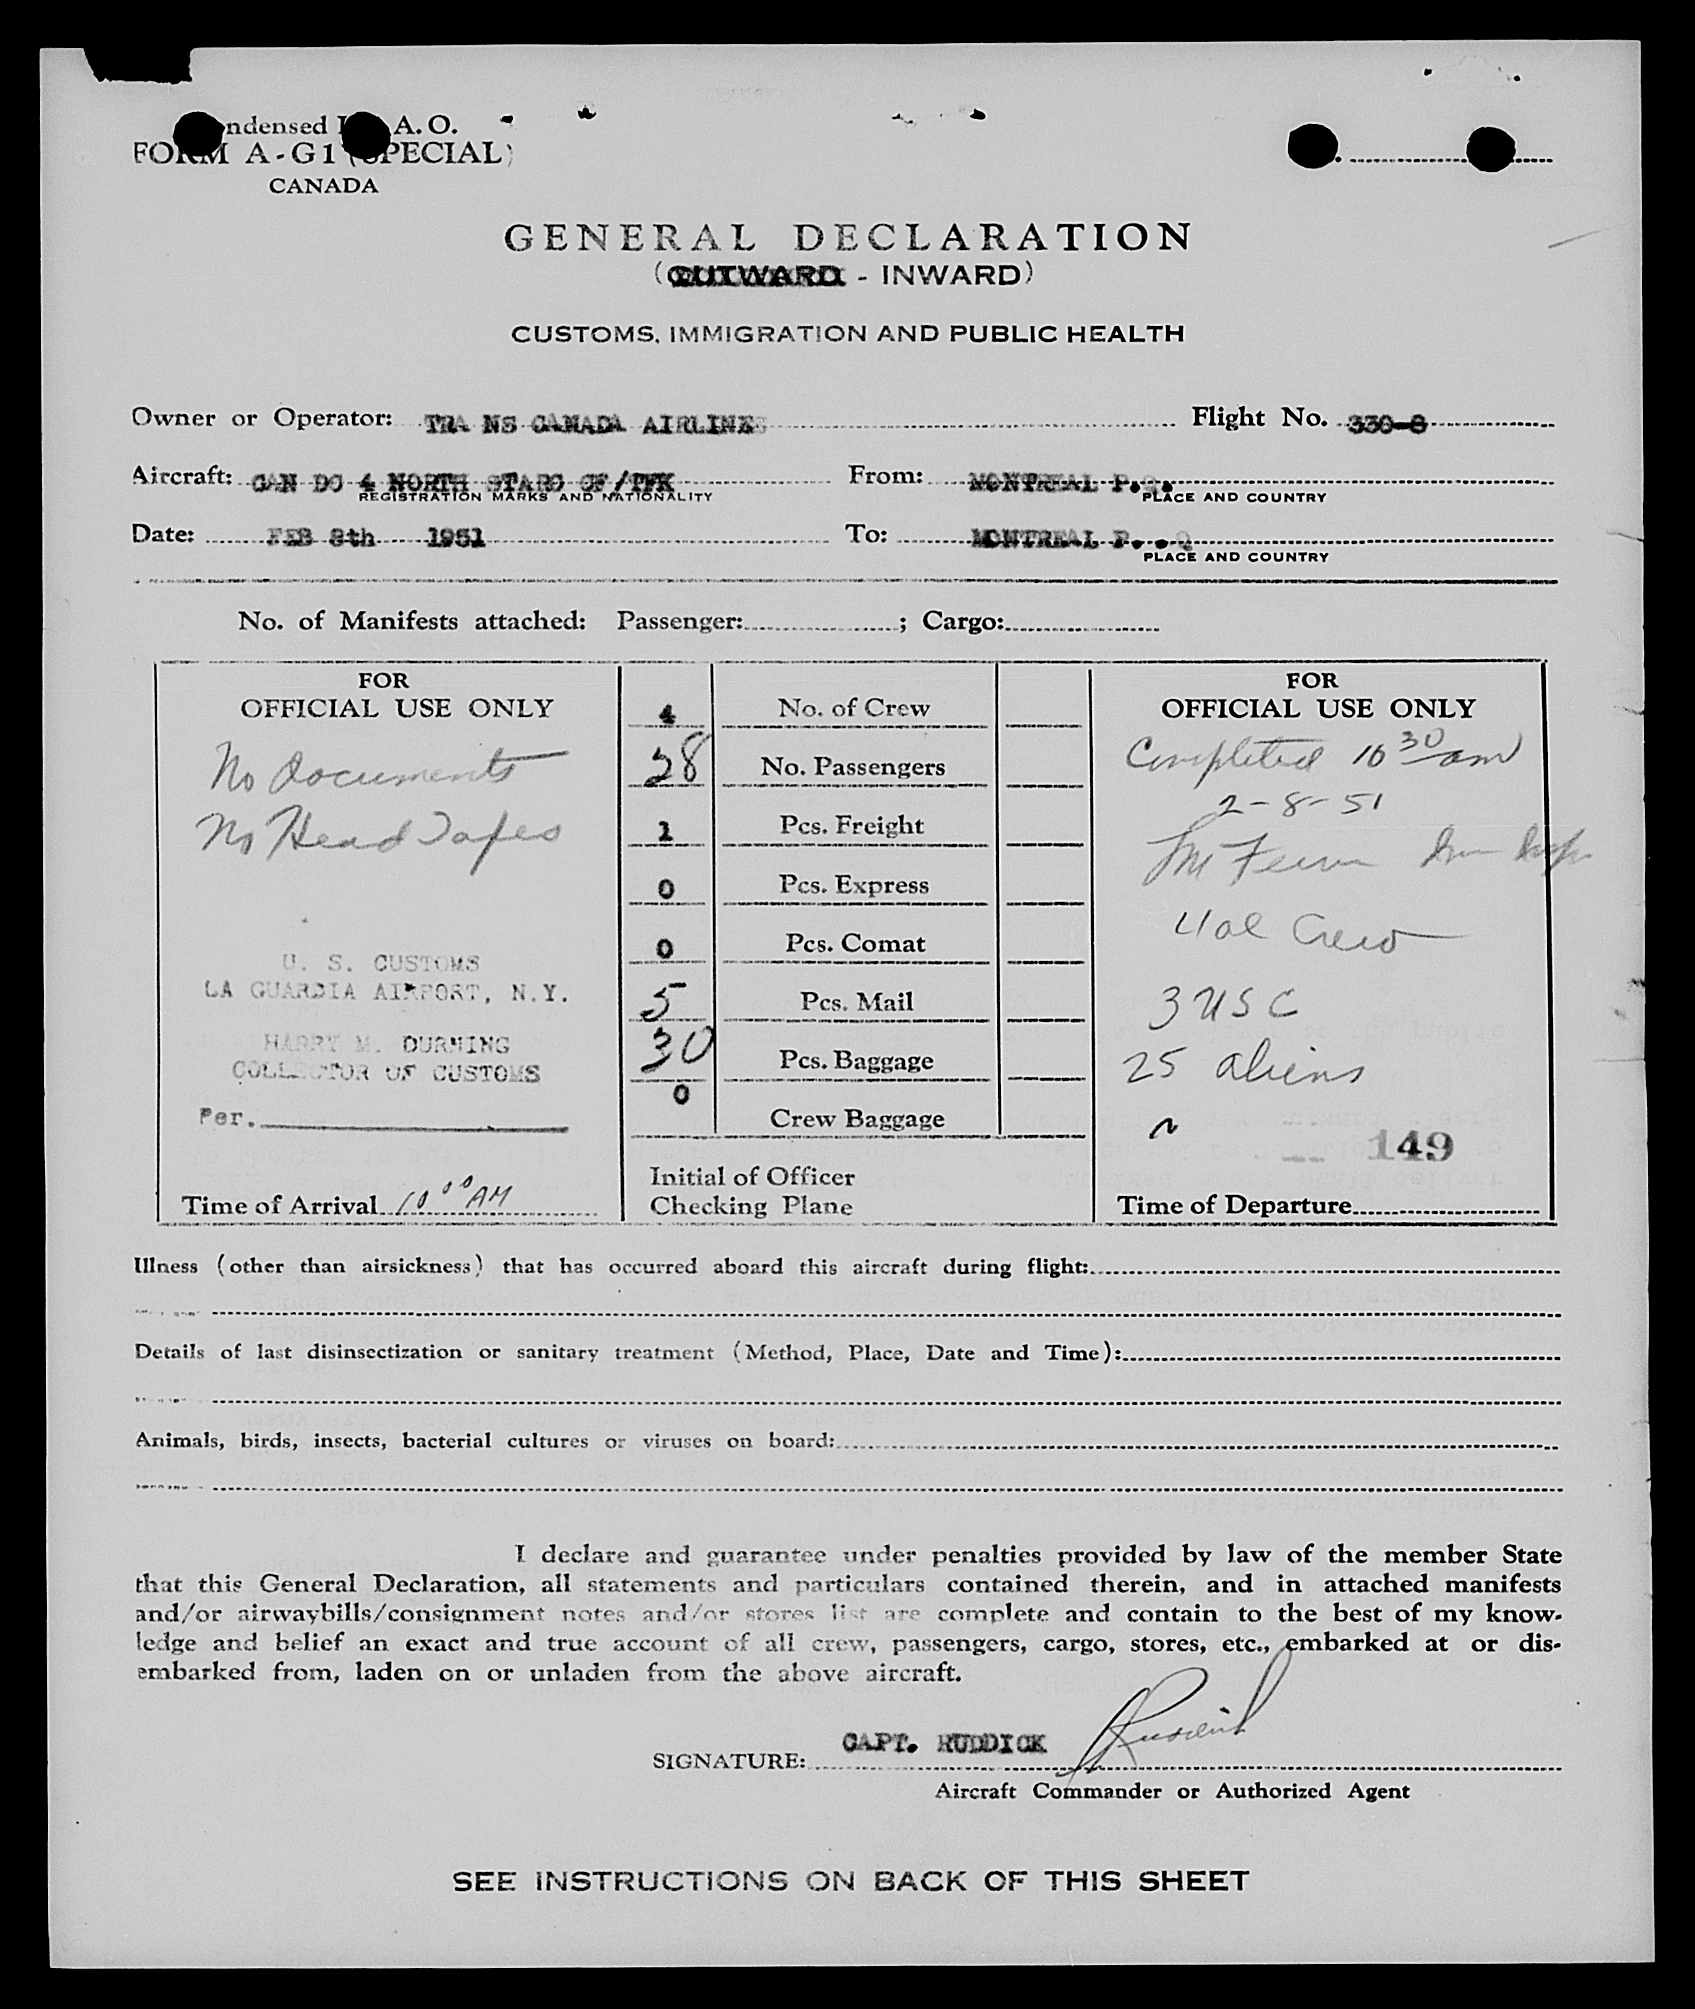 ndensed I A. O.
FORM A-G1 (SPECIAL)
CANADA
GENERAL DECLARATION
(OUTWARD - INWARD)
CUSTOMS, IMMIGRATION AND PUBLIC HEALTH
Owner or Operator: TRA NS CANADA AIRLINES Flight No. 330-8
Aircraft: CAN DC 4 NORTH STARS CF/TFK From: MONTREAL P.Q.
REGISTRATION MARKS AND NATIONALITY PLACE AND COUNTRY
Date: FEB 8th 1951 To: MONTREAL P. .Q
PLACE AND COUNTRY
No. of Manifests attached: Passenger: ; Cargo:
FOR
OFFICIAL USE ONLY
No documents
No Head Tapes
U. S. CUSTOMS
LA GUARDIA AIRPORT, N.Y.
HARRY M. DURNING
COLLECTOR OF CUSTOMS
Per.
Time of Arrival 10 00 AM
4 No. of Crew
28 No. Passengers
1 Pcs. Freight
0 Pcs. Express
0 Pcs. Comat
5 Pcs. Mail
30 Pcs. Baggage
0 Crew Baggage
Initial of Officer
Checking Plane
FOR
OFFICIAL USE ONLY
Completed 10 30 am
2-8-51
Crew
3 USC
25 aliens
149
Time of Departure
Illness (other than airsickness) that has occurred aboard this aircraft during flight:
Details of last disinsectization or sanitary treatment (Method, Place, Date and Time):
Animals, birds, insects, bacterial cultures or viruses on board:
I declare and guarantee under penalties provided by law of the member State
that this General Declaration, all statements and particulars contained therein, and in attached manifests
and/or airwaybills/consignment notes and/or stores list are complete and contain to the best of my know-
ledge and belief an exact and true account of all crew, passengers, cargo, stores, etc., embarked at or dis-
embarked from, laden on or unladen from the above aircraft.
SIGNATURE: CAPT. RUDDICK Ruddick
Aircraft Commander or Authorized Agent
SEE INSTRUCTIONS ON BACK OF THIS SHEET